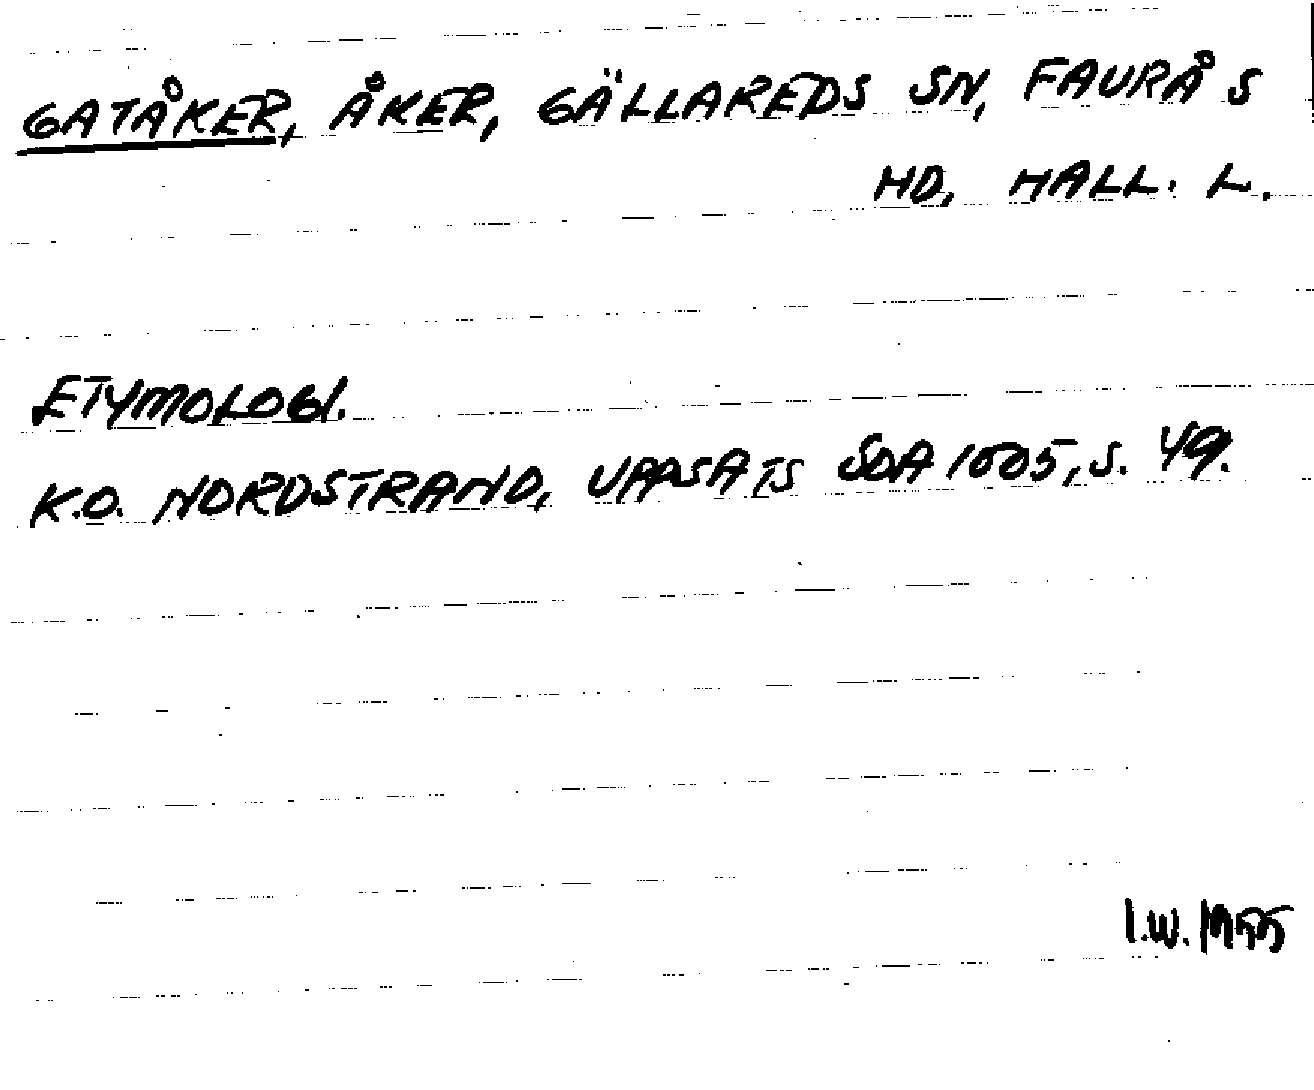 GATÅKER, ÅKER, GÄLLAREDS SN, FAURÅS
HD, HALL. L.
ETYMOLOGI.
K.O. NORDSTRAND, UPPSATS SOA 1005, S. 49.
I.W.